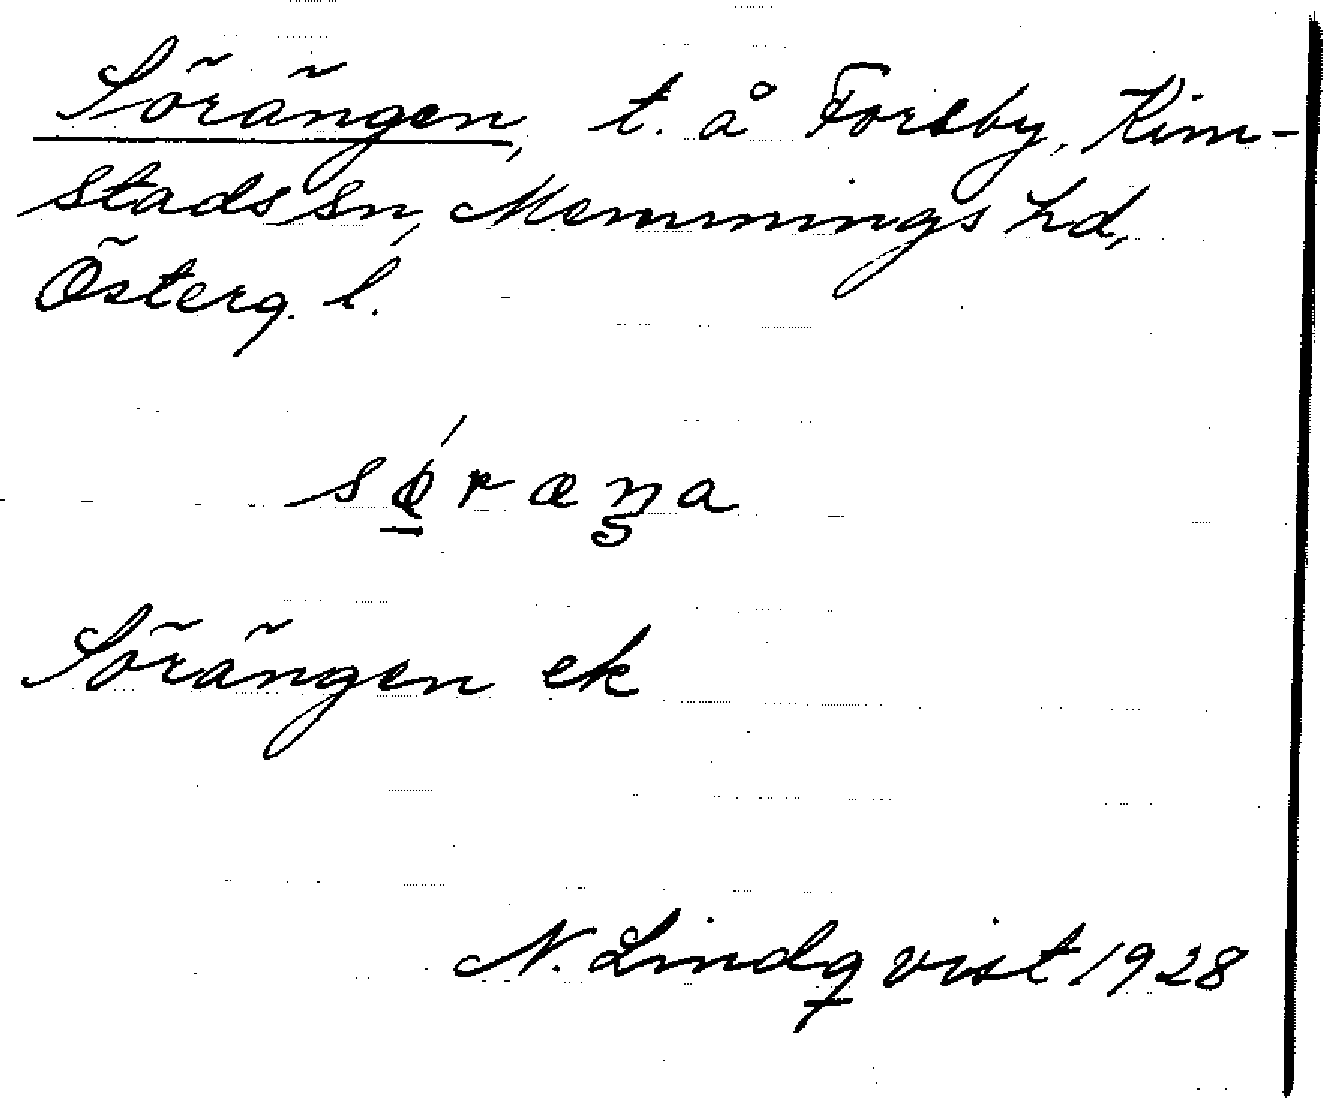 Sörängen, t. å Forsby, Kim-
stads sn, Memmings hd,
Österg. l.
sǿ̱ræŋa
Sörängen ek
N. Lindqvist 1928